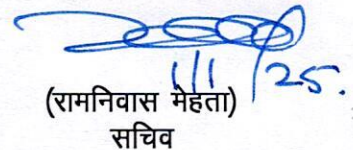 1/1/25.
(रामनिवास मेहता)
सचिव